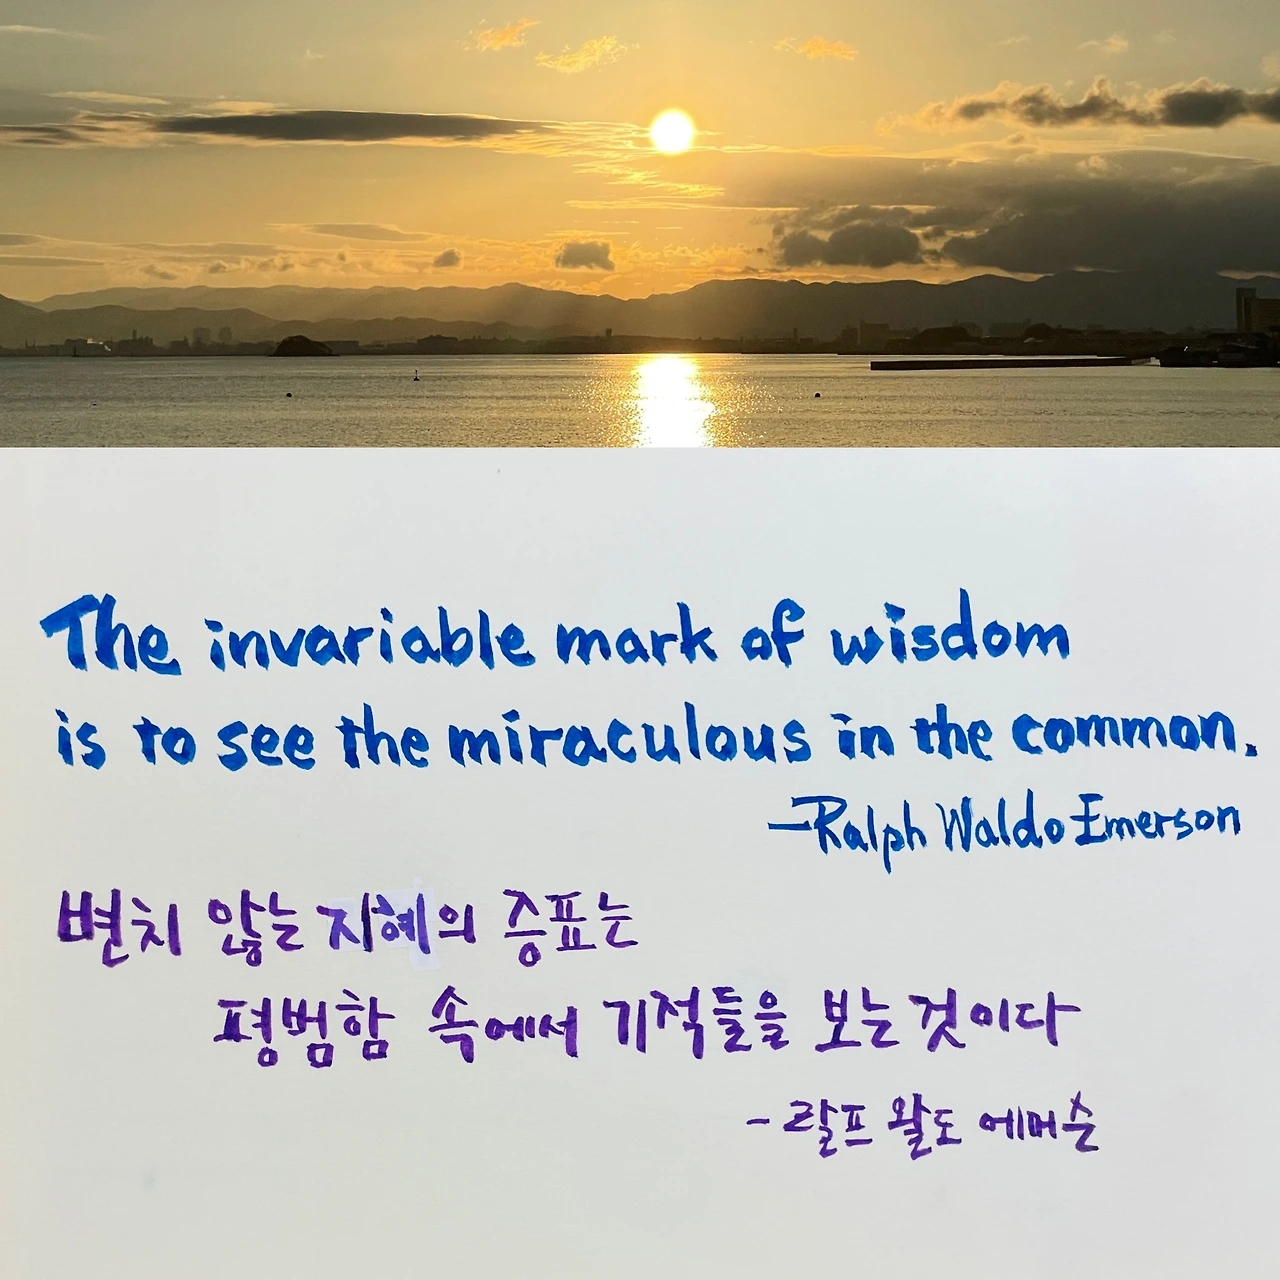 The invariable mark of wisdom
is to see the miraculous in the common.
-Ralph Waldo Emerson
변치 않는 지혜의 증표는
평범함 속에서 기적들을 보는 것이다
- 랄프 왈도 에머슨